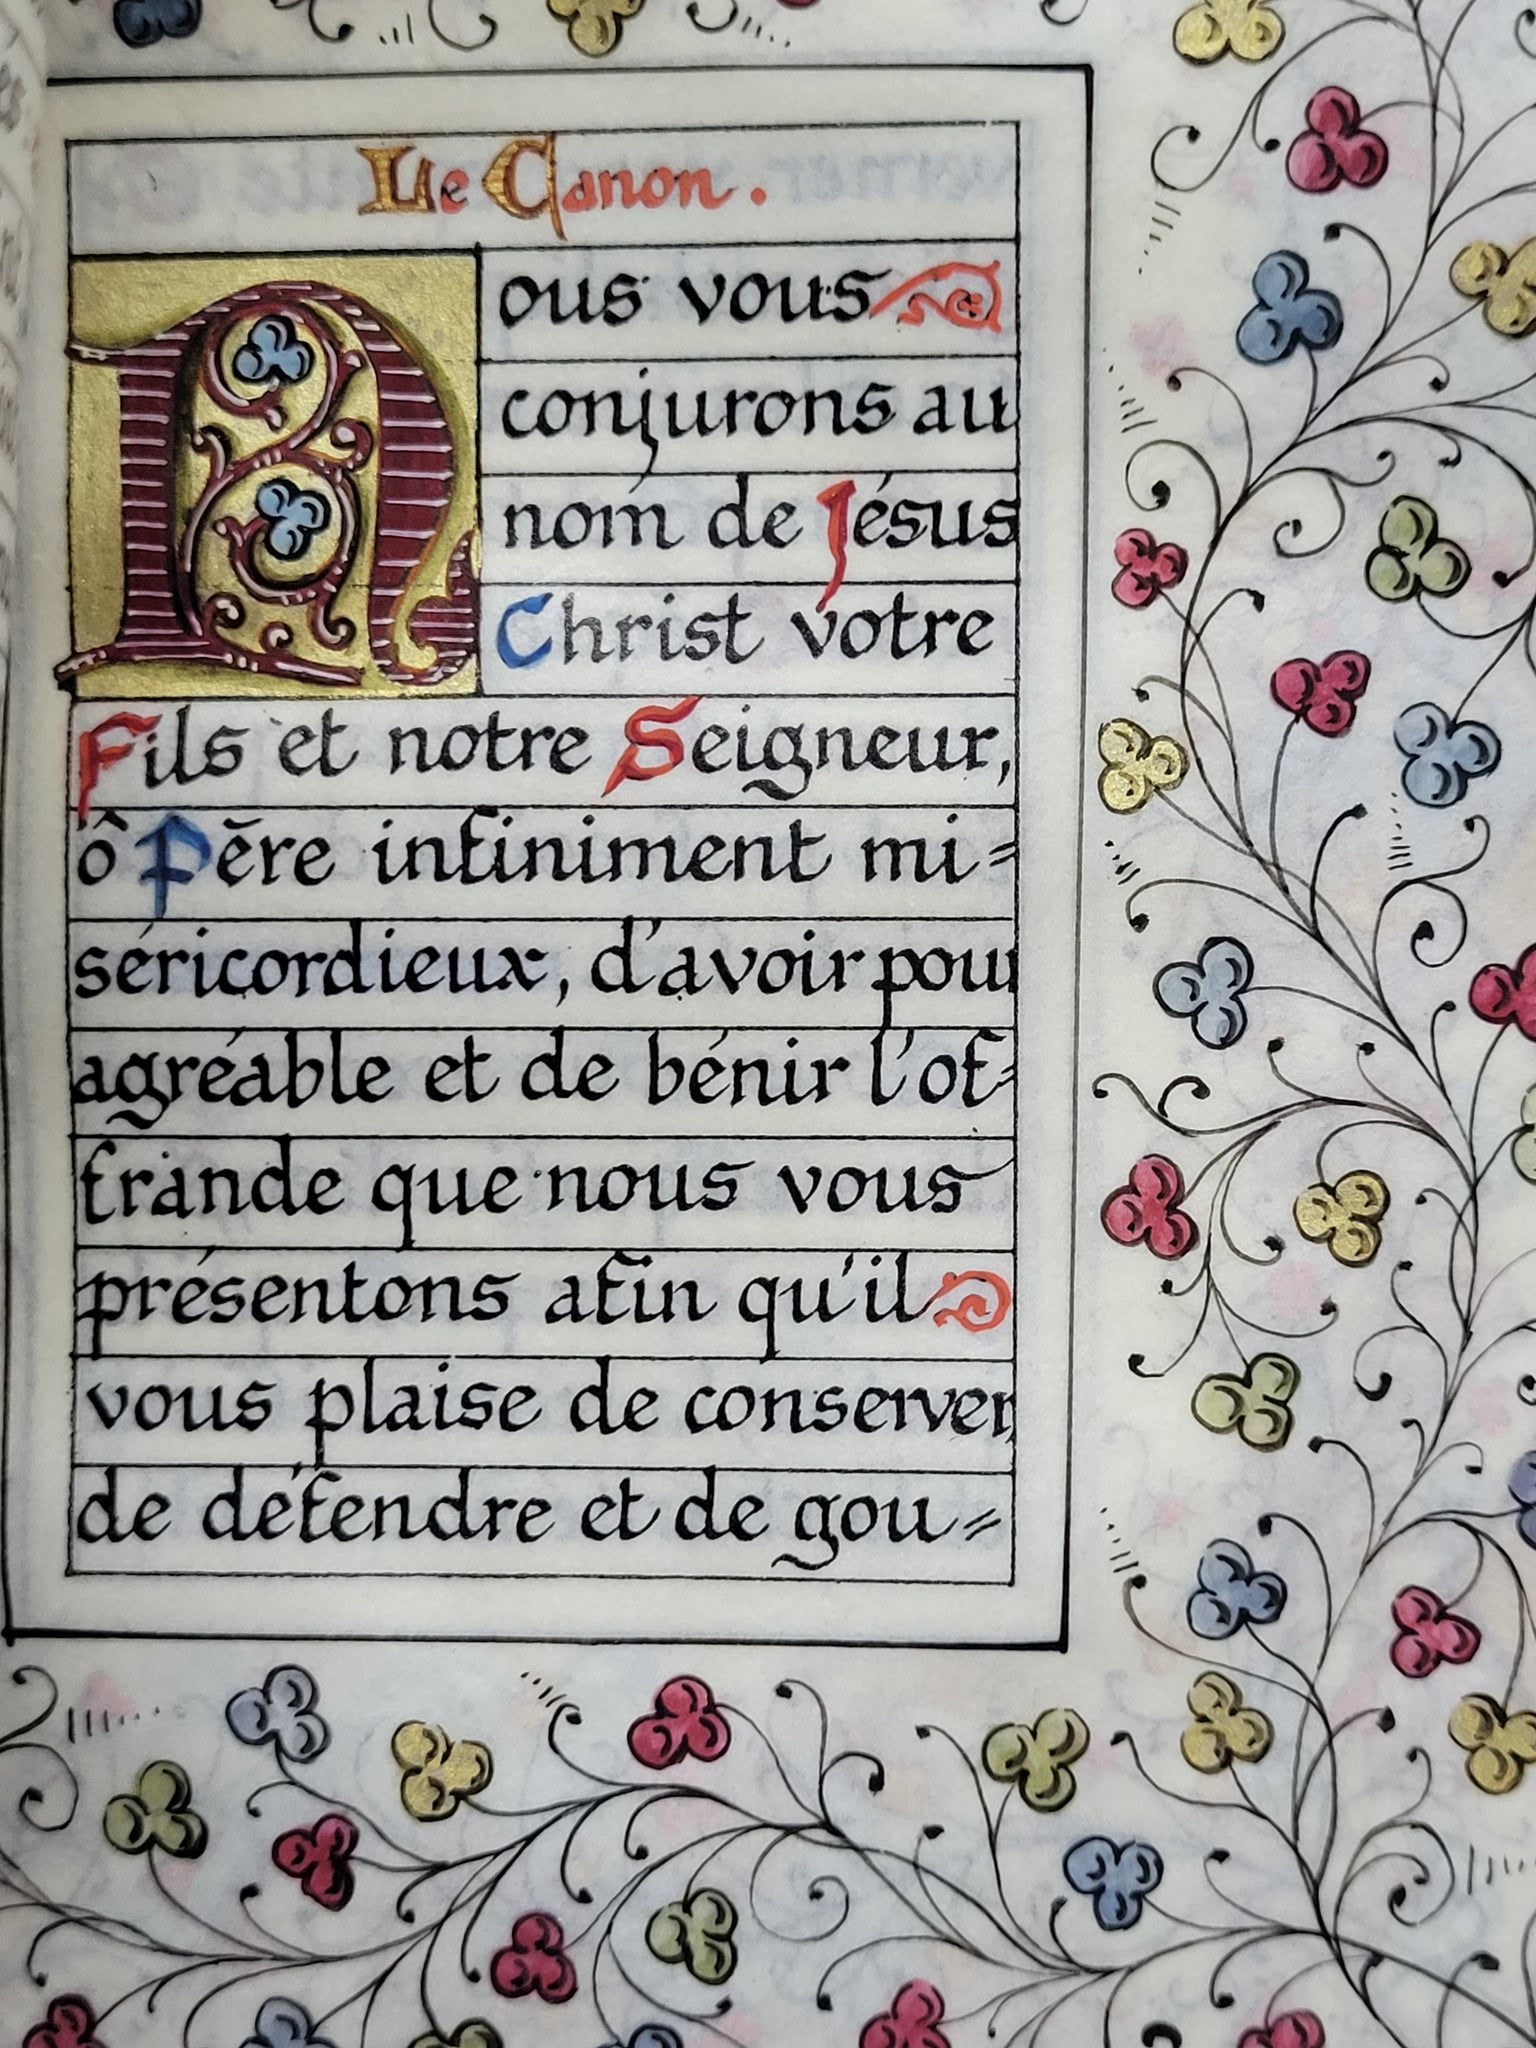 Le Canon.
Nous vous
conjurons au
nom de Jésus
Christ votre
Fils et notre Seigneur,
ô Père infiniment mi=
séricordieux, d'avoir pour
agréable et de bénir l'of=
frande que nous vous
présentons afin qu'il
vous plaise de conserver,
de défendre et de gou=